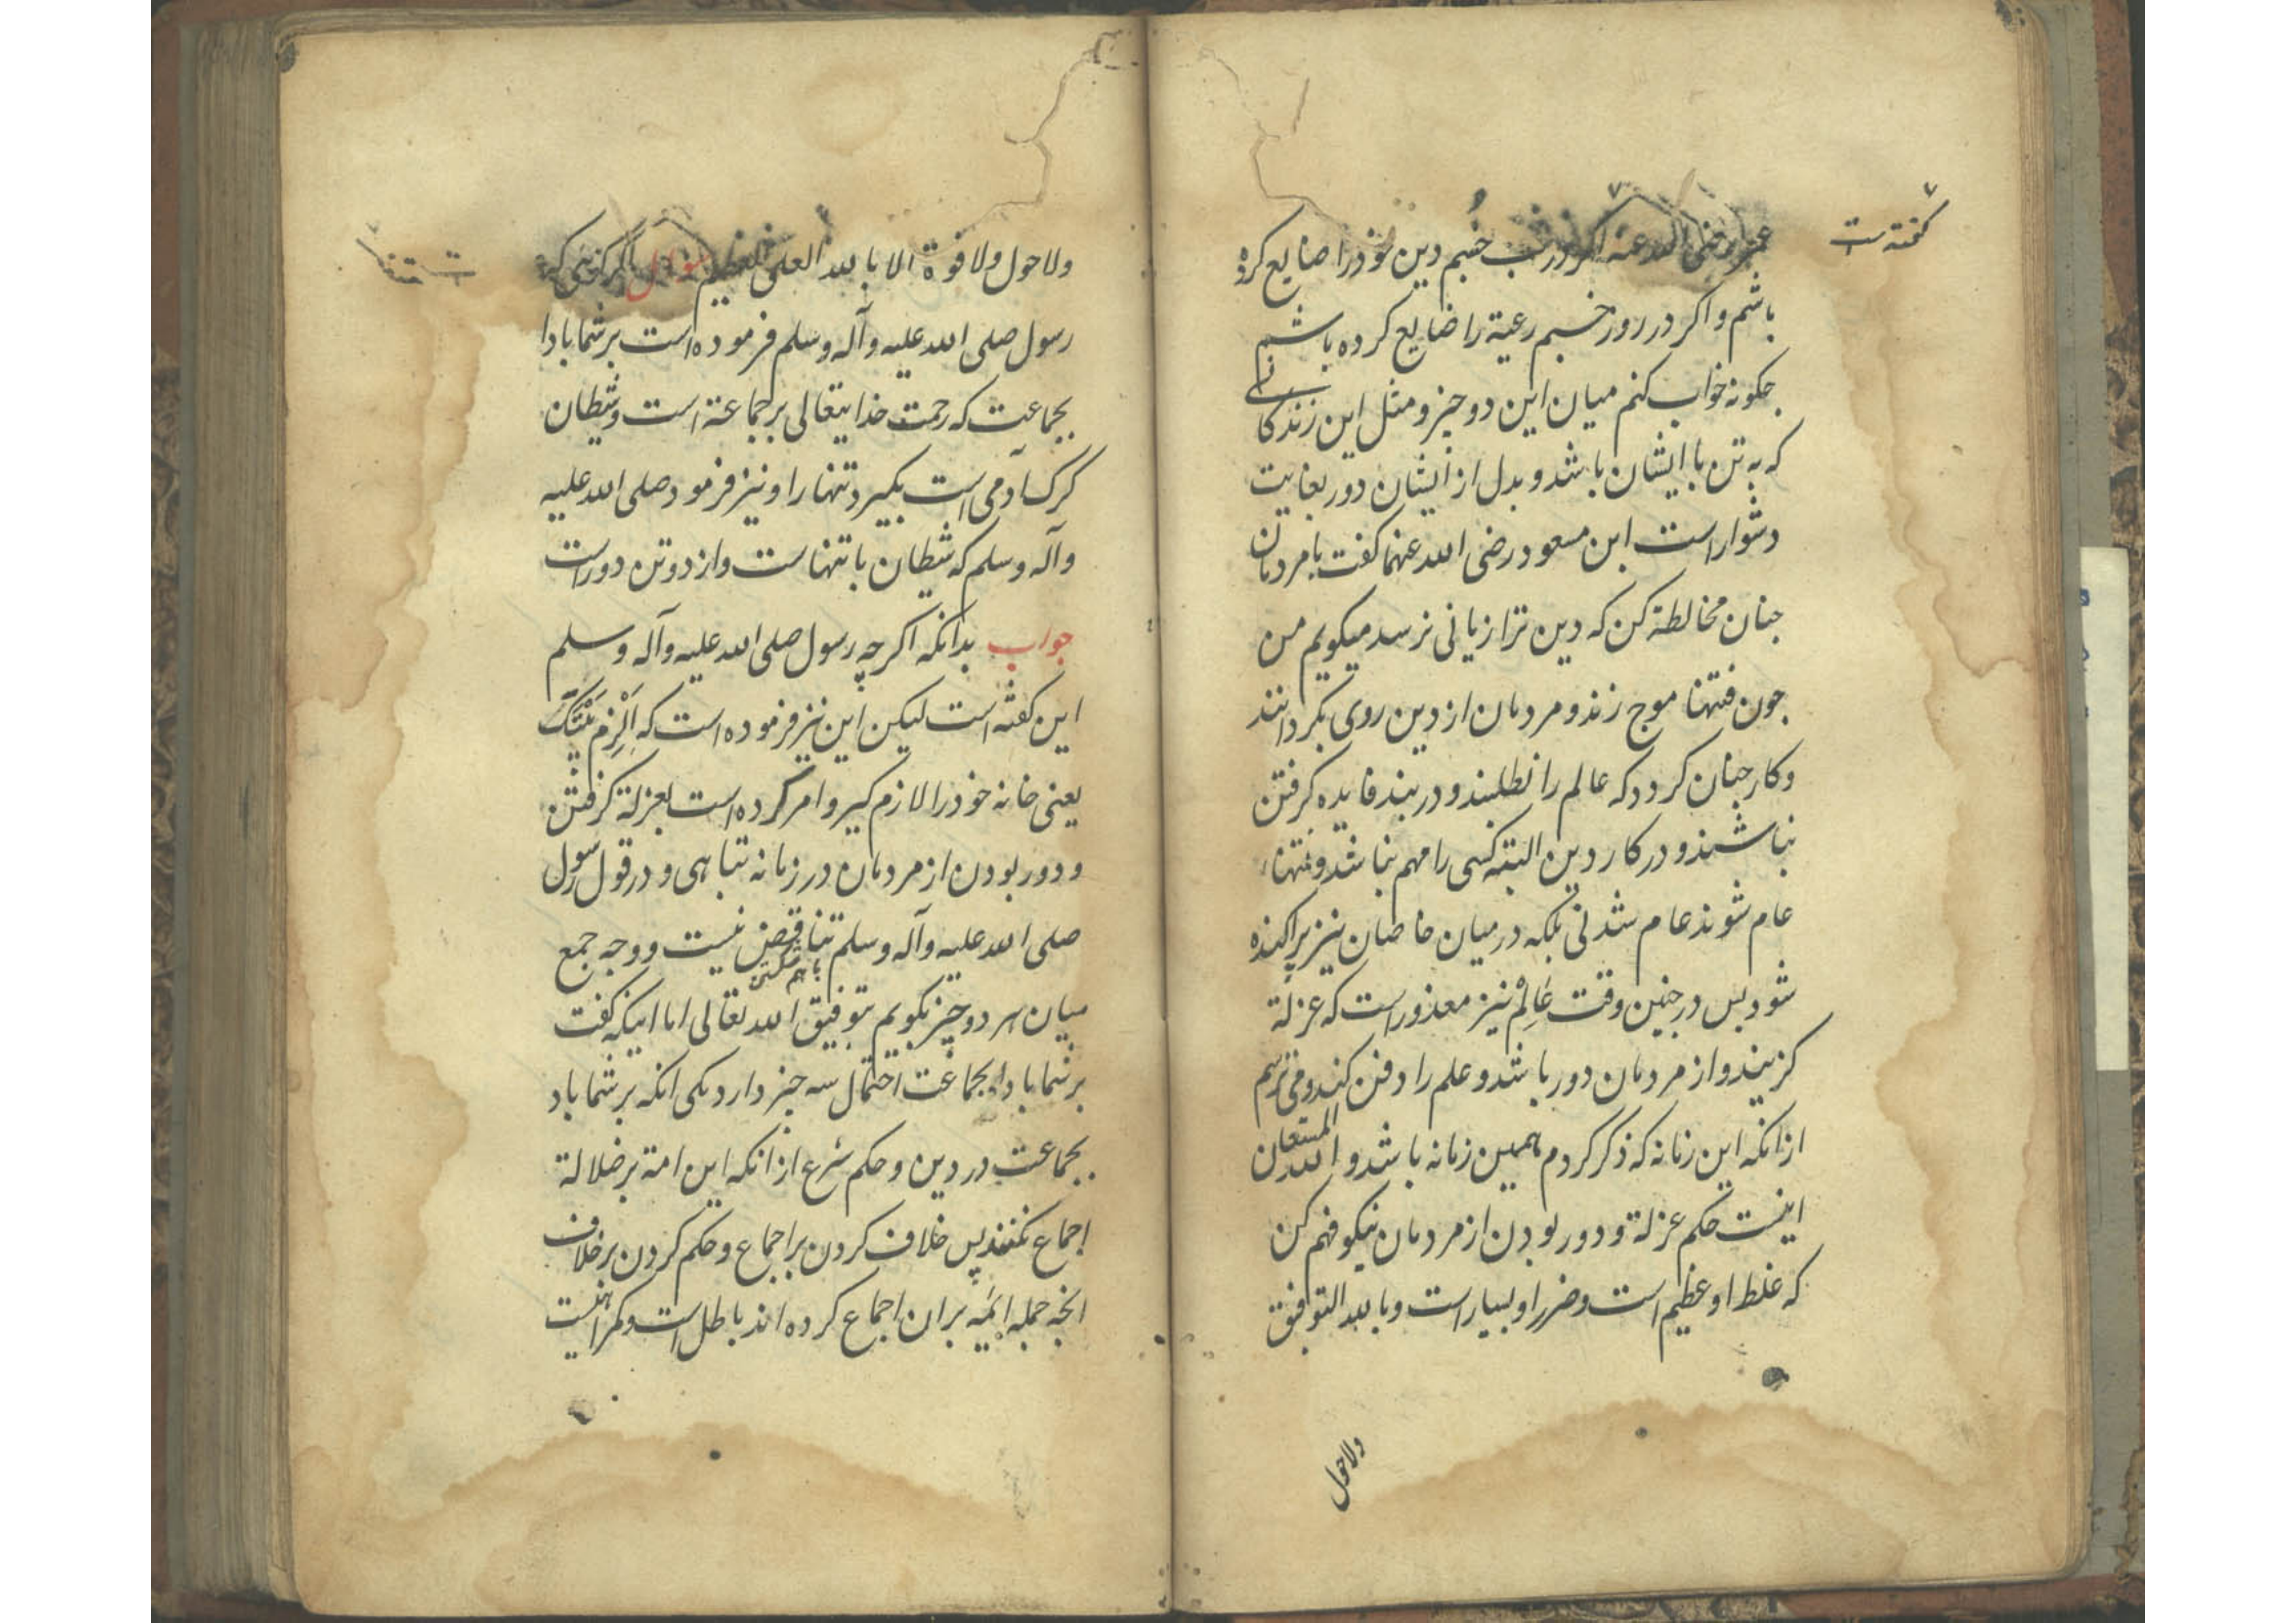 گفته است
عمر رضی الله عنه اگر در شب خسبم دین خود را ضایع کرده
باشم و اگر در روز خسبم رعیة را ضایع کرده باشم
جکونه خواب کنم میان این دو جیز و مثل این زندکانی
که به تن با ایشان باشد و بدل از ایشان دور بغایت
دشوار است ابن مسعود رضی الله عنهما کفت با مردمان
جنان مخالطة کن که دین ترا زیانی نرسد میکویم من
جون فتنها موج زند و مردمان از دین روی بکردانند
و کار جنان کردد که عالم را نطلبند و در بند فایده کرفتن
نباشند و در کار دین البته کسی را مهم نباشد و فتنها
عام شوند عام شدنی بلکه در میان خاصان نیز پراکنده
شود بس در جنین وقت عالم نیز معذور است که عزلة
کزیند و از مردمان دور باشد و علم را دفن کند و می ترسم
از انکه این زمانه که ذکر کردم همین زمانه باشد و الله المستعان
اینست حکم عزلة و دور بودن از مردمان نیکو فهم کن
که غلط او عظیم است و ضرر او بسیار است و بالله التوفیق
ولاحول
ولا حول ولا قوة الا بالله العلی العظیم سوال اکر کویی که
رسول صلی الله علیه وآله وسلم فرموده است بر شما بادا
بجماعت که رحمت خدایتعالی بر جماعة است و شیطان
کرک آدمی است بکیرد تنها را و نیز فرمود صلی الله علیه
وآله وسلم که شیطان با تنهاست و از دو تن دور است
جواب بدانکه اکرچه رسول صلی الله علیه وآله وسلم
این کفته است لیکن این نیز فرموده است که اِلْزِم بَیْتَکَ
یعنی خانه خود را لازم کیر و امر کرده است بعزلة کرفتن
و دور بودن از مردمان در زمانه تباهی و در قول رسول
صلی الله علیه وآله وسلم تناقض نیست و وجه جمع
میان هر دو چیز بکویم بتوفیق الله تعالی اما اینکه کفت
بر شما بادا بجماعت احتمال سه جیز دارد یکی انکه بر شما باد
بجماعت در دین و حکم شرع از انکه این امة بر ضلالة
اجماع نکنند پس خلاف کردن بر اجماع و حکم کردن بر خلاف
انچه جمله ائمّه بران اجماع کرده اند باطل است و کمراهیست